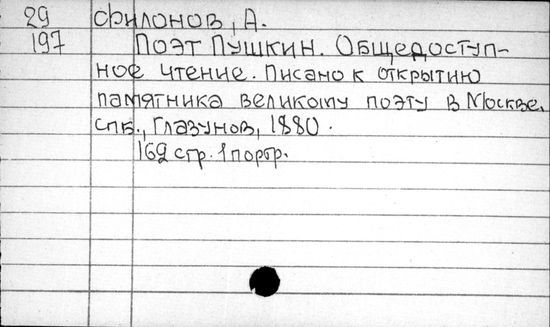 29 Филонов, А.
197 Поэт Пушкин. Общедоступ-
ное чтение. Писано к открытию
памятника великому поэту в Москве.
Спб., Глазунов, 1880.
162 стр. 1 портр.